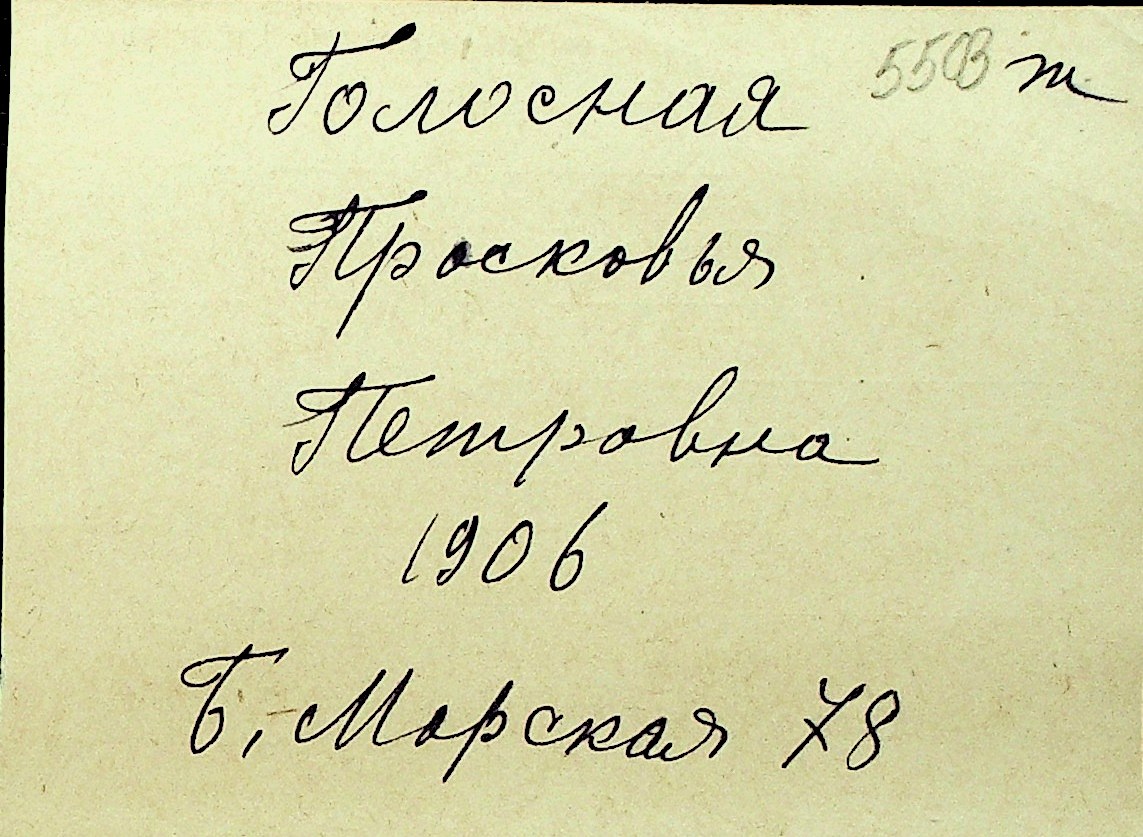 Голосная 5503 т
Просковья
Петровна
1906
Б. Морская 78